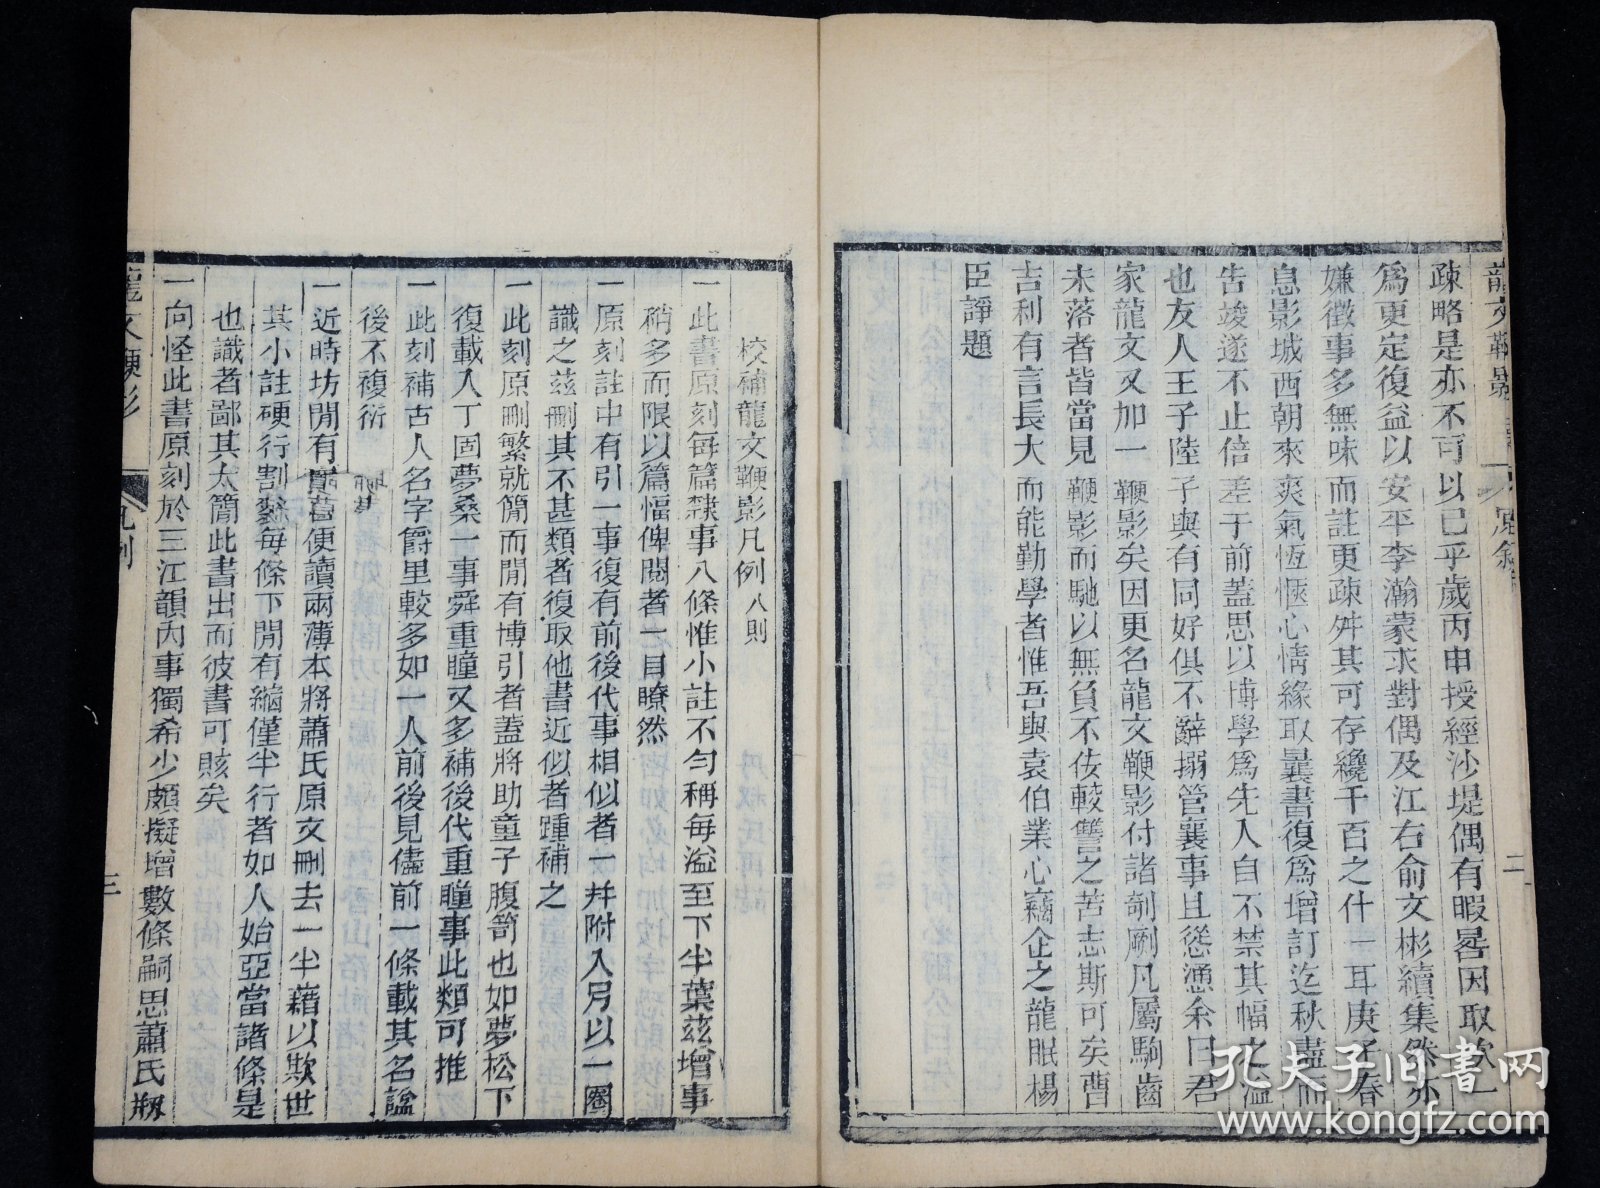 龍文鞭影
疎略是亦不可以已乎歲丙申授經沙堤偶有暇晷因取欽一
爲更定復益以安平李瀚蒙求對偶及江右俞文彬續集然亦
嫌徵事多無味而註更疎舛其可存纔千百之什一耳庚子春
息影城西朝來爽氣恆愜心情緣取曩書復爲增訂迄秋盡而
告竣遂不止倍差于前蓋思以博學爲先入自不禁其幅之溢
也友人王子陸子與有同好俱不辭搦管襄事且慫慂余曰君
家龍文又加一鞭影矣因更名龍文鞭影付諸剞劂凡屬駒齒
未落者皆當見鞭影而馳以無負不佞較讐之苦志斯可矣曹
吉利有言長大而能勤學者惟吾與袁伯業心竊企之龍眠楊
臣諍題
校補龍文鞭影凡例八則
一此書原刻每篇隸事八條惟小註不匀稱每溢至下半葉茲增事
稍多而限以篇幅俾閱者一目瞭然
一原刻註中有引一事復有前後代事相似者一幷附入另以一圈
識之茲刪其不甚類者復取他書近似者踵補之
一此刻原刪繁就簡而閒有博引者蓋將助童子腹笥也如夢松下
復載人丁固夢桑一事舜重瞳又多補後代重瞳事此類可推
一此刻補古人名字爵里較多如一人前後見儘前一條載其名諡
後不複衍
一近時坊閒有舊使讀兩薄本將蕭氏原文刪去一半藉以欺世
其小註硬行割裂每條下閒有縮僅半行者如人始亞當諸條是
也識者鄙其太簡此書出而彼書可賅矣
一向怪此書原刻於三江韻內事獨希少頗擬增數條嗣思蕭氏剏
龍文鞭影
凡例
三
孔夫子旧书网
www.kongfz.com